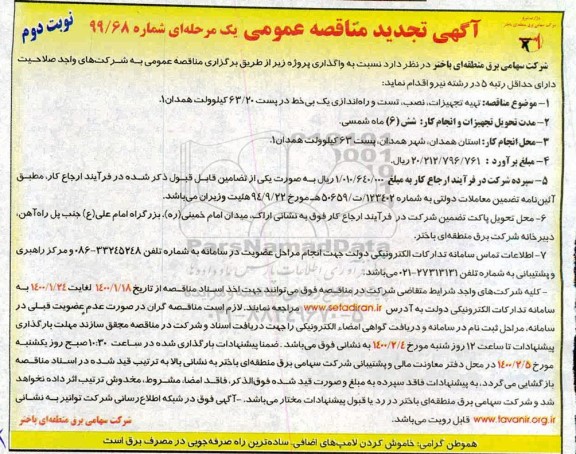 نوبت دوم
آگهی تجدید مناقصه عمومی یک مرحله‌ای شماره ۹۹/۶۸
شرکت سهامی برق منطقه‌ای باختر در نظر دارد نسبت به واگذاری پروژه زیر از طریق برگزاری مناقصه عمومی به شرکت‌های واجد صلاحیت
دارای حداقل رتبه ۵ در رشته نیرو اقدام نماید:
۱- موضوع مناقصه: تهیه تجهیزات، نصب، تست و راه‌اندازی یک بی خط در پست ۶۳/۲۰ کیلوولت همدان۱.
۲- مدت تحویل تجهیزات و انجام کار: شش (۶) ماه شمسی.
۳- محل انجام کار: استان همدان، شهر همدان، پست ۶۳ کیلوولت همدان۱.
۴- مبلغ برآورد : ۲۰/۲۱۲/۷۹۶/۷۶۱ ریال.
۵- سپرده شرکت در فرآیند ارجاع کار به مبلغ ۱/۰۱۰/۶۴۰/۰۰۰ ریال به صورت یکی از تضامین قابل قبول ذکر شده در فرآیند ارجاع کار، مطابق
آئین‌نامه تضمین معاملات دولتی به شماره ۱۲۳۴۰۲/ت/۵۰۶۵۹هـ مورخ ۹۴/۹/۲۲ هئیت وزیران می‌باشد.
۶- محل تحویل پاکت تضمین شرکت در فرآیند ارجاع کار فوق به نشانی اراک، میدان امام خمینی (ره)، بزرگراه امام علی(ع) جنب پل راه‌آهن،
دبیرخانه شرکت برق منطقه‌ای باختر.
۷- اطلاعات تماس سامانه تدارکات الکترونیکی دولت جهت انجام مراحل عضویت در سامانه به شماره تلفن ۳۳۲۴۵۲۴۸-۰۸۶ و مرکز راهبری
و پشتیبانی به شماره تلفن ۲۷۳۱۳۱۳۱-۰۲۱ می‌باشد.
- کلیه شرکت‌های واجد شرایط متقاضی شرکت در مناقصه فوق می‌توانند جهت اخذ اسناد مناقصه از تاریخ ۱۴۰۰/۱/۱۸ لغایت ۱۴۰۰/۱/۲۴ به
سامانه تدارکات الکترونیکی دولت به آدرس www.setadiran.ir مراجعه نمایند. لازم است مناقصه گران در صورت عدم عضویت قبلی در
سامانه، مراحل ثبت نام در سامانه و دریافت گواهی امضاء الکترونیکی را جهت دریافت اسناد و شرکت در مناقصه محقق سازند مهلت بارگذاری
پیشنهادات تا ساعت ۱۲ روز شنبه مورخ ۱۴۰۰/۲/۴ به نشانی فوق می‌باشد . ضمنا پیشنهادات بارگذاری شده در ساعت ۱۰:۳۰ صبح روز یکشنبه
مورخ ۱۴۰۰/۲/۵ در محل دفتر معاونت مالی و پشتیبانی شرکت سهامی برق منطقه‌ای باختر به نشانی بالا به ترتیب قید شده در اسناد مناقصه
بازگشایی می گردد. به پیشنهادات فاقد سپرده به مبلغ و صورت قید شده فوق‌الذکر، فاقد امضا، مشروط، مخدوش ترتیب اثر داده نخواهد
شد و شرکت سهامی برق منطقه‌ای باختر در رد یا قبول پیشنهادات مختار می‌باشد. - آگهی فوق در شبکه اطلاع رسانی شرکت توانیر به نشانی
www.tavanir.org.ir قابل رویت می‌باشد.
شرکت سهامی برق منطقه‌ای باختر
هموطن گرامی: خاموش کردن لامپ‌های اضافی، ساده‌ترین راه صرفه‌جویی در مصرف برق است
ParsNamadData